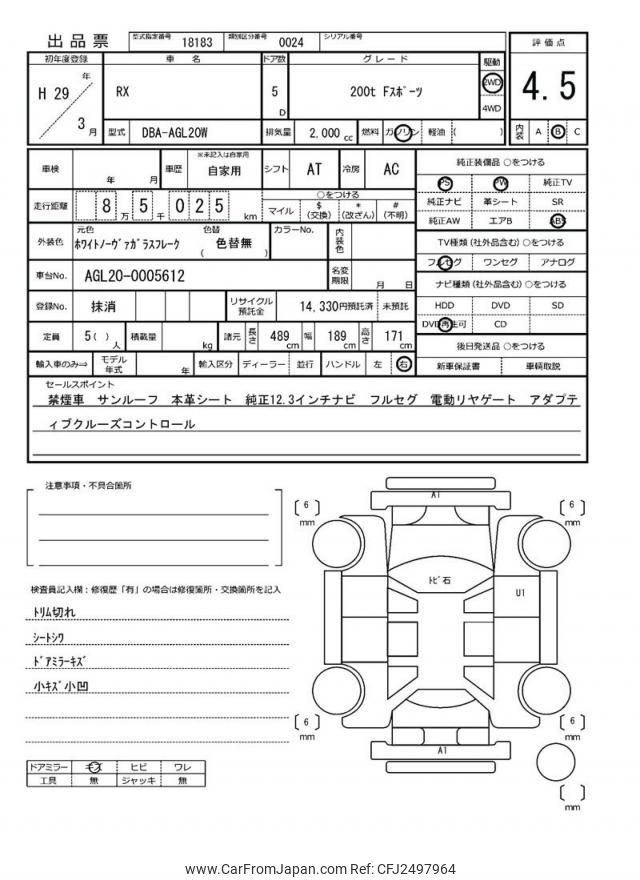 出品票 型式指定番号 18183 類別区分番号 0024 シリアル番号
初年度登録 車名 ドア数 グレード 駆動 評価点
H 29 年 3 月 RX 5 D 200t Fスポーツ 2WD 4WD 4.5
型式 DBA-AGL20W 排気量 2,000 cc 燃料 ガソリン 軽油 ( ) 内装 A B C
車検 年 月 車歴 ※未記入は自家用 自家用 シフト AT 冷房 AC
走行距離 8 万 5 千 0 2 5 km ○をつける マイル $ (交換) * (改ざん) # (不明)
外装色 元色 ホワイトノーヴァガラスフレーク 色替 ( 色替無 ) カラーNo. 内装色
車台No. AGL20-0005612 名変期限 月 日
登録No. 抹消 リサイクル預託金 14,330円預託済 未預託
定員 5( ) 人 積載量 kg 諸元 長さ 489 cm 幅 189 cm 高さ 171 cm
輸入車のみ⇒ モデル年式 年 輸入区分 ディーラー 並行 ハンドル 左 右
純正装備品 ○をつける
PS PW 純正TV
純正ナビ 革シート SR
純正AW エアB ABS
TV種類(社外品含む) ○をつける
フルセグ ワンセグ アナログ
ナビ種類(社外品含む) ○をつける
HDD DVD SD
DVD再生可 CD
後日発送品 ○をつける
新車保証書 車輌取説
セールスポイント
禁煙車 サンルーフ 本革シート 純正12.3インチナビ フルセグ 電動リヤゲート アダプテ
ィブクルーズコントロール
注意事項・不具合箇所
検査員記入欄:修復歴「有」の場合は修復箇所・交換箇所を記入
トリム切れ
シートシワ
ドアミラーキズ
小キズ小凹
ドアミラー キズ ヒビ ワレ
工具 無 ジャッキ 無
A1
[ 6 ] mm
[ 6 ] mm
トビ石
U1
[ 6 ] mm
[ 6 ] mm
A1
[ ] mm
www.CarFromJapan.com Ref: CFJ2497964